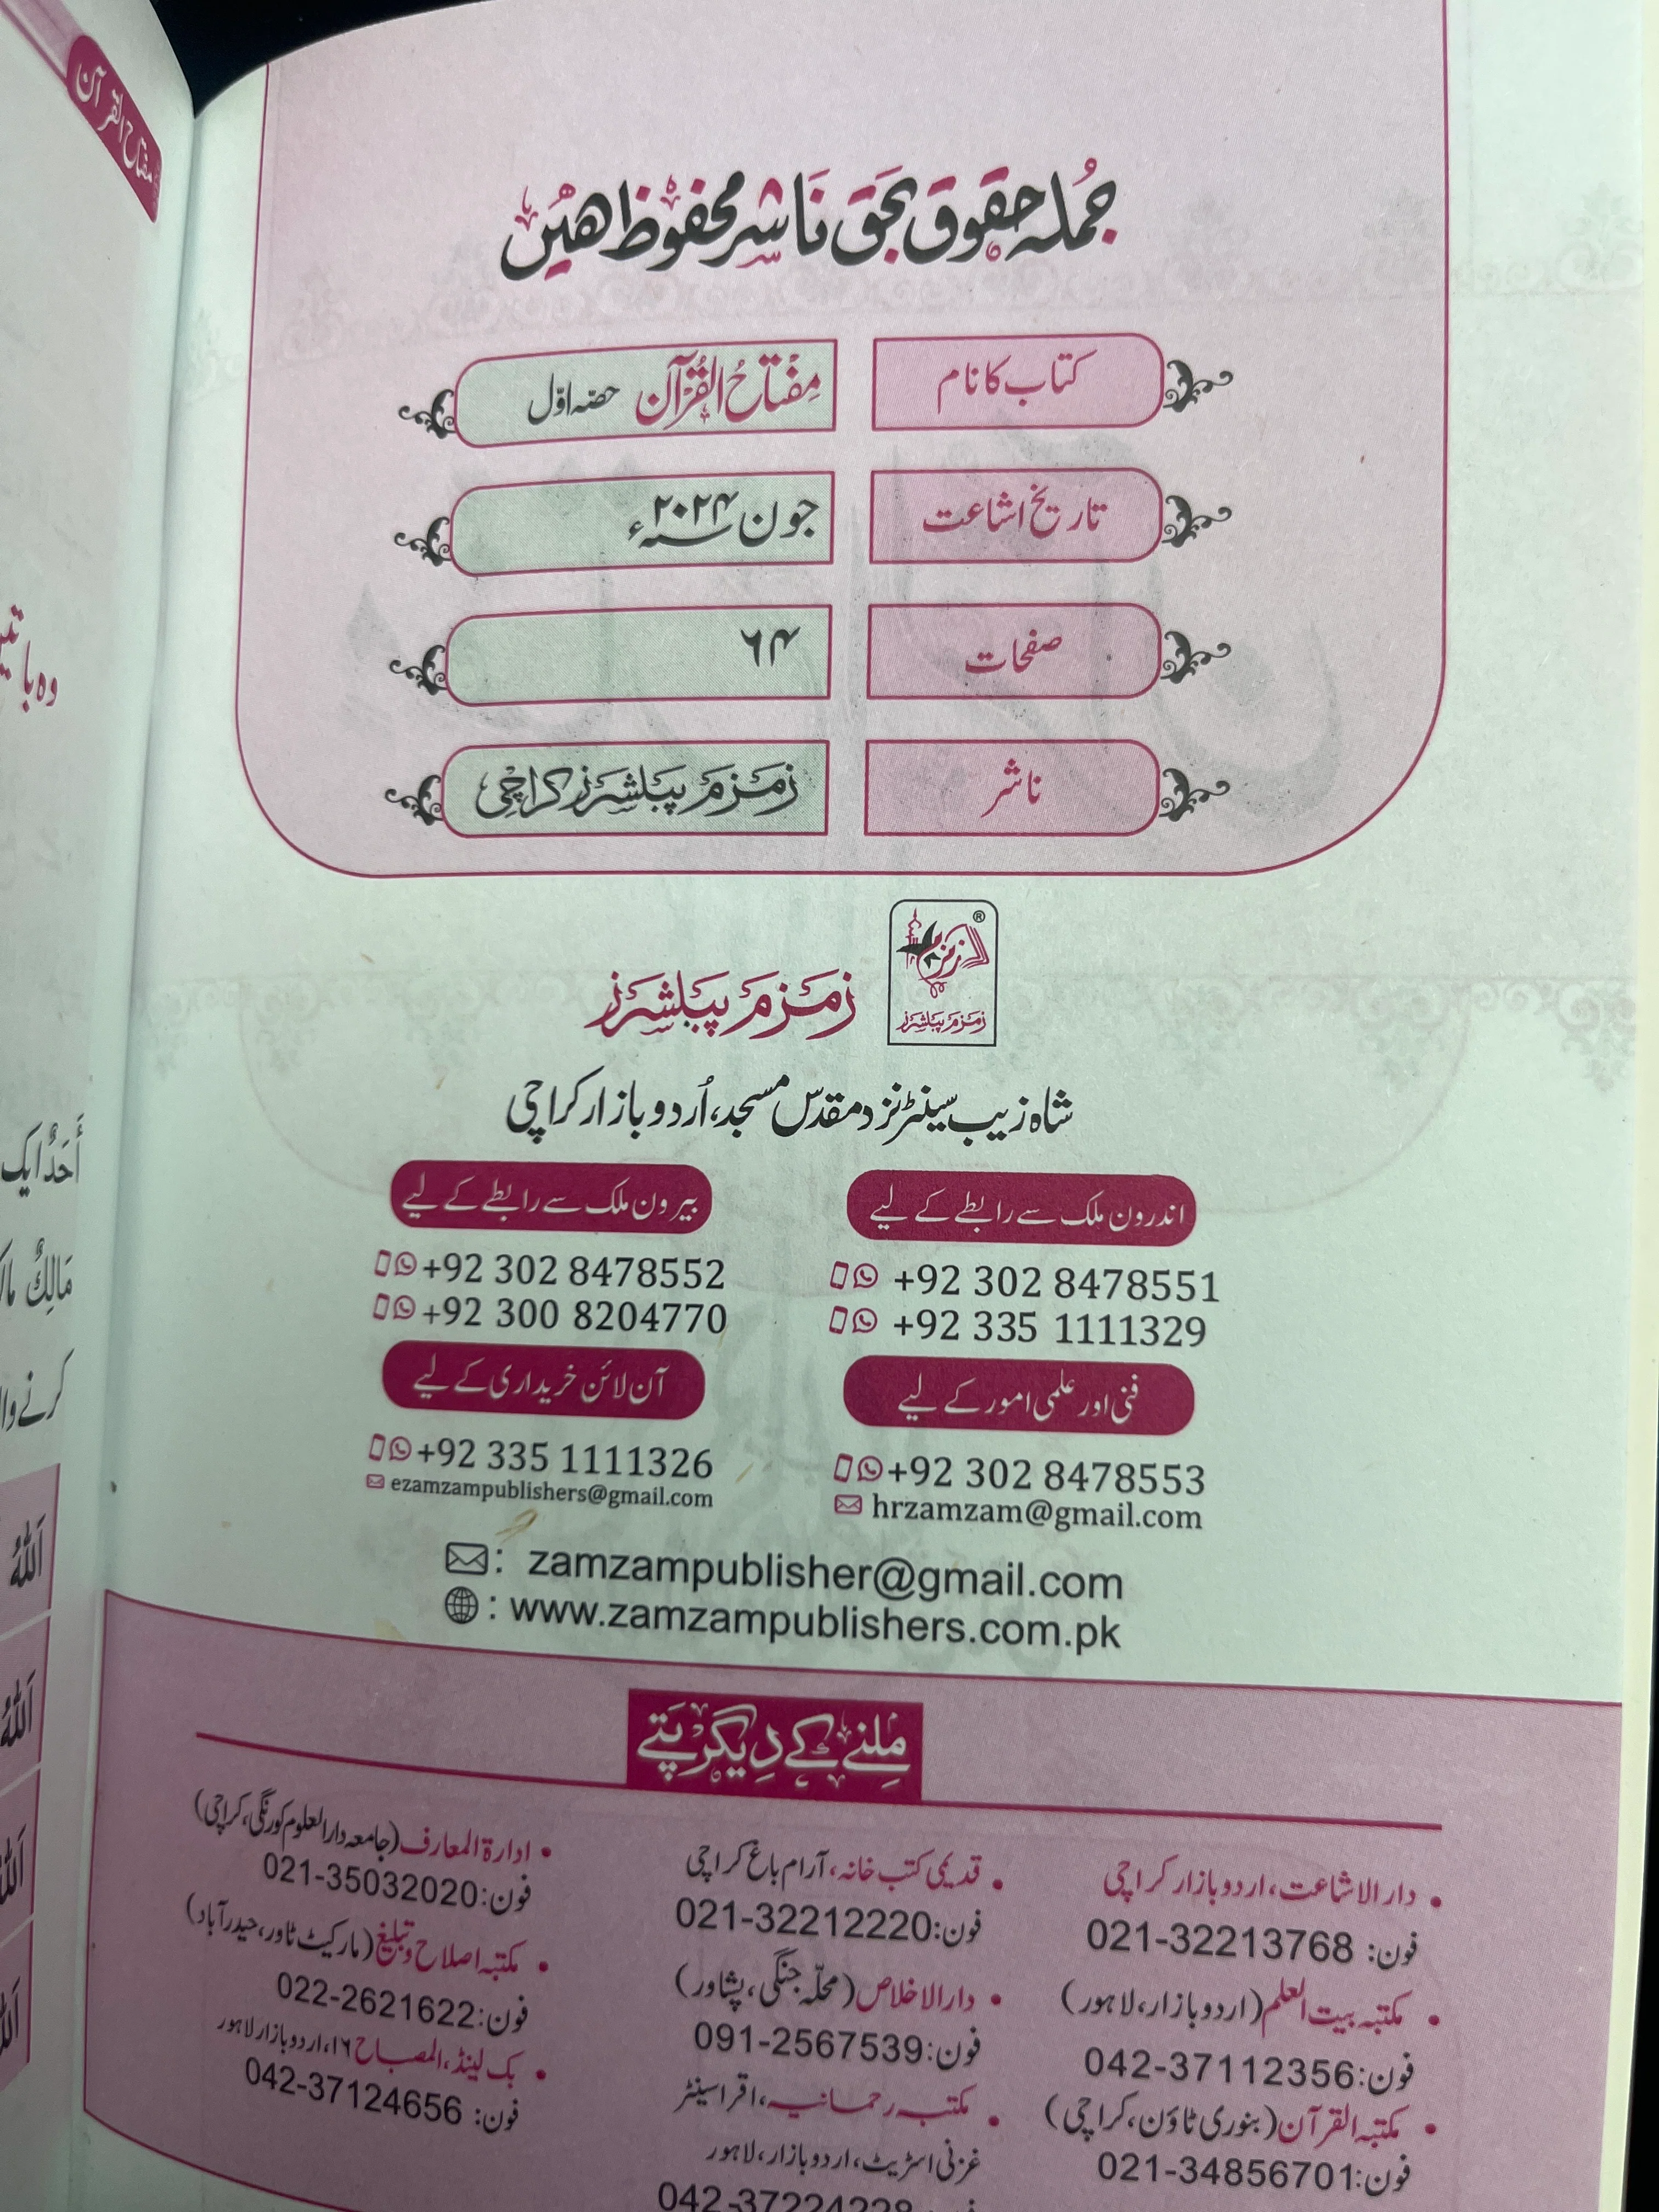 مفتاح القرآن
جُملہ حقوق بحق ناشر محفوظ ھیں
کتاب کا نام
مِفْتَاحُ الْقُرْآن حصّہ اوّل
تاریخ اشاعت
جون ۲۰۲۴ء
صفحات
۶۴
ناشر
زمزم پبلشرز کراچی
زمزم
®
زمزم پبلشرز
زمزم پبلشرز
شاہ زیب سینٹر نزد مقدس مسجد، اُردو بازار کراچی
اندرون ملک سے رابطے کے لیے
+92 302 8478551
+92 335 1111329
بیرون ملک سے رابطے کے لیے
+92 302 8478552
+92 300 8204770
فنی اور علمی امور کے لیے
+92 302 8478553
hrzamzam@gmail.com
آن لائن خریداری کے لیے
+92 335 1111326
ezamzampublishers@gmail.com
: zamzampublisher@gmail.com
: www.zamzampublishers.com.pk
مِلنے کے دِیگر پَتے
• دار الاشاعت، اردو بازار کراچی
فون: 021-32213768
• مکتبہ بیت العلم (اردو بازار، لاہور)
فون: 042-37112356
• مکتبہ القرآن (بنوری ٹاؤن، کراچی)
فون: 021-34856701
• قدیمی کتب خانہ، آرام باغ کراچی
فون: 021-32212220
• دار الاخلاص (محلّہ جنگی، پشاور)
فون: 091-2567539
• مکتبہ رحمانیہ، اقرا سینٹر
غزنی اسٹریٹ، اردو بازار، لاہور
فون: 042-37224228
• ادارۃ المعارف (جامعہ دار العلوم کورنگی، کراچی)
فون: 021-35032020
• مکتبہ اصلاح و تبلیغ (مارکیٹ ٹاور، حیدرآباد)
فون: 022-2621622
• بک لینڈ، المصباح ۱۶، اردو بازار لاہور
فون: 042-37124656
وہ با
أَحَدٌ ایک
مَالِكٌ
کرنے وا
اَللّٰهُ
اَللّٰهُ